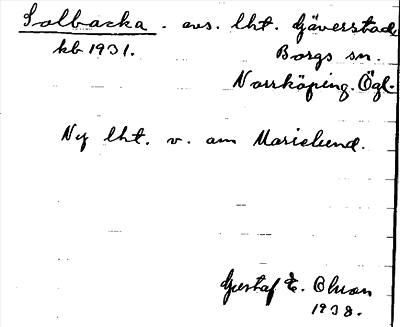 Solbacka. avs. lht. Gäverstad
kb 1931. Borgs sn.
Norrköping. Ögl.
Ny lht. v. om Marielund.
Gustaf E. Olson
1938.